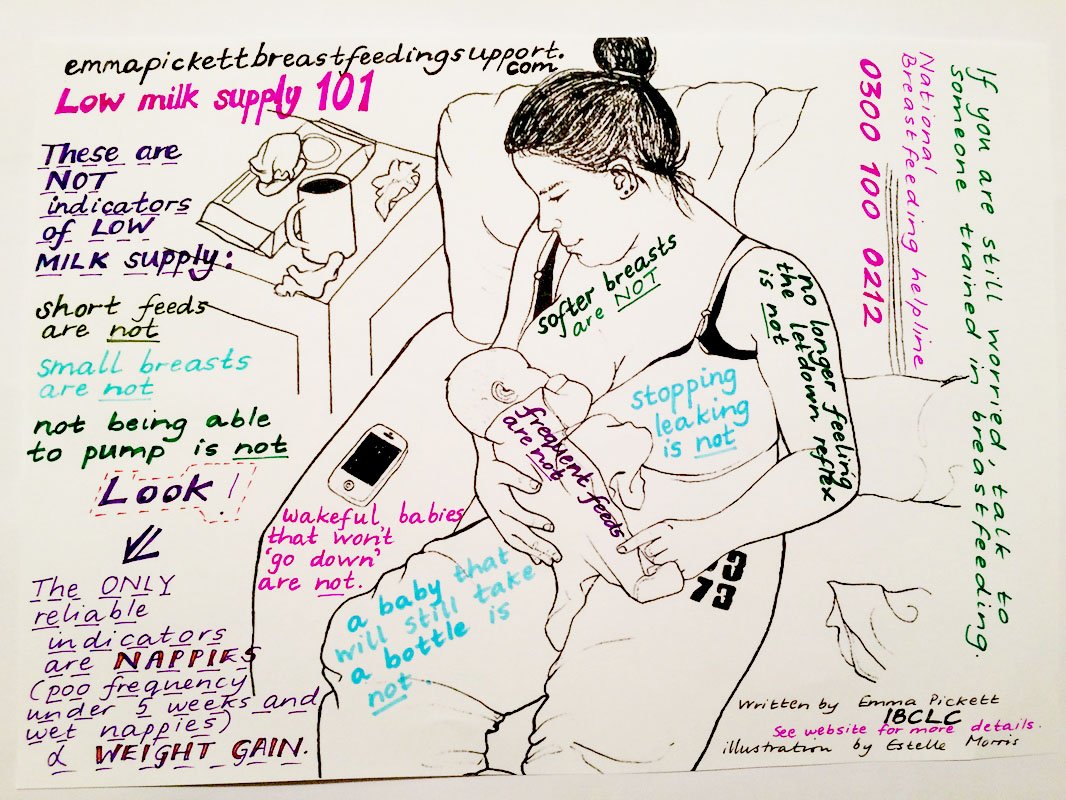 emmapickettbreastfeedingsupport.
com
Low milk supply 101
These are
NOT
indicators
of LOW
MILK supply:
short feeds
are not
small breasts
are not
not being able
to pump is not
Look!
The ONLY
reliable
indicators
are NAPPIES
(poo frequency
under 5 weeks and
wet nappies)
& WEIGHT GAIN.
wakeful babies
that won't
'go down'
are not.
a baby that
will still take
a bottle is
not.
softer breasts
are NOT
frequent feeds
are not
stopping
leaking
is not
no longer feeling
the letdown reflex
is not
73
73
If you are still worried, talk to
someone trained in breastfeeding.
National
Breastfeeding helpline
0300 100 0212
Written by Emma Pickett
IBCLC
See website for more details.
illustration by Estelle Morris